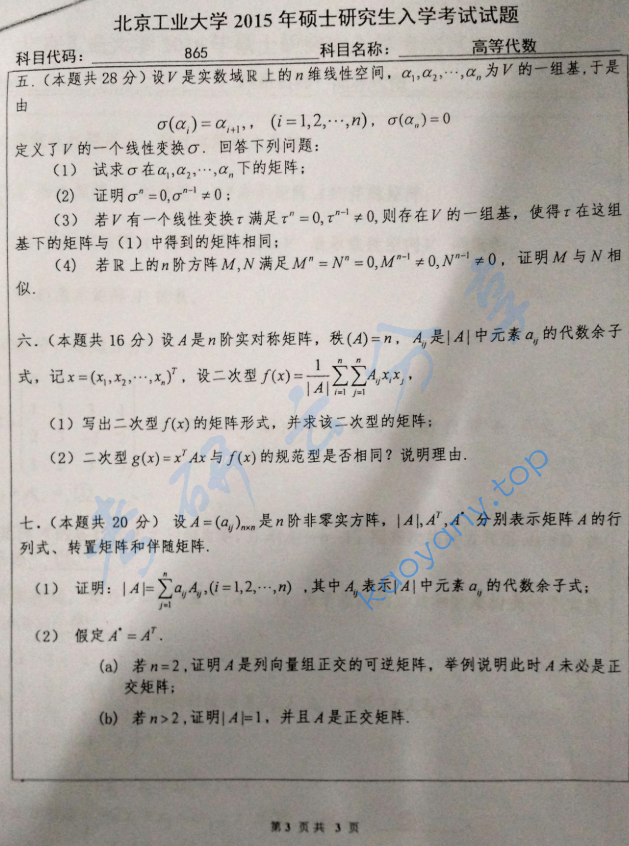 北京工业大学 2015 年硕士研究生入学考试试题
科目代码: 865 科目名称: 高等代数
五.(本题共 28 分)设V是实数域ℝ上的n维线性空间, α₁,α₂,⋯,αₙ为V的一组基,于是
由
σ(αᵢ)=αᵢ₊₁,, (i=1,2,⋯,n), σ(αₙ)=0
定义了V的一个线性变换σ. 回答下列问题:
(1) 试求σ在α₁,α₂,⋯,αₙ下的矩阵;
(2) 证明σⁿ=0,σⁿ⁻¹≠0;
(3) 若V有一个线性变换τ满足τⁿ=0,τⁿ⁻¹≠0,则存在V的一组基, 使得τ在这组
基下的矩阵与(1)中得到的矩阵相同;
(4) 若ℝ上的n阶方阵M,N满足Mⁿ=Nⁿ=0,Mⁿ⁻¹≠0,Nⁿ⁻¹≠0, 证明M与N相
似.
六.(本题共 16 分)设A是n阶实对称矩阵, 秩(A)=n, Aᵢⱼ是|A|中元素aᵢⱼ的代数余子
式, 记x=(x₁,x₂,⋯,xₙ)ᵀ, 设二次型f(x)=\frac{1}{|A|}\sum_{i=1}^{n}\sum_{j=1}^{n}Aᵢⱼxᵢxⱼ,
(1) 写出二次型f(x)的矩阵形式, 并求该二次型的矩阵;
(2) 二次型g(x)=xᵀAx与f(x)的规范型是否相同? 说明理由.
七.(本题共 20 分) 设A=(aᵢⱼ)ₙₓₙ是n阶非零实方阵, |A|,Aᵀ,A* 分别表示矩阵A的行
列式、转置矩阵和伴随矩阵.
(1) 证明: |A|=\sum_{j=1}^{n}aᵢⱼAᵢⱼ,(i=1,2,⋯,n) ,其中Aᵢⱼ表示|A|中元素aᵢⱼ的代数余子式;
(2) 假定A*=Aᵀ.
(a) 若n=2,证明A是列向量组正交的可逆矩阵, 举例说明此时A未必是正
交矩阵;
(b) 若n>2,证明|A|=1, 并且A是正交矩阵.
第 3 页 共 3 页
考研云分享
kaoyany.top